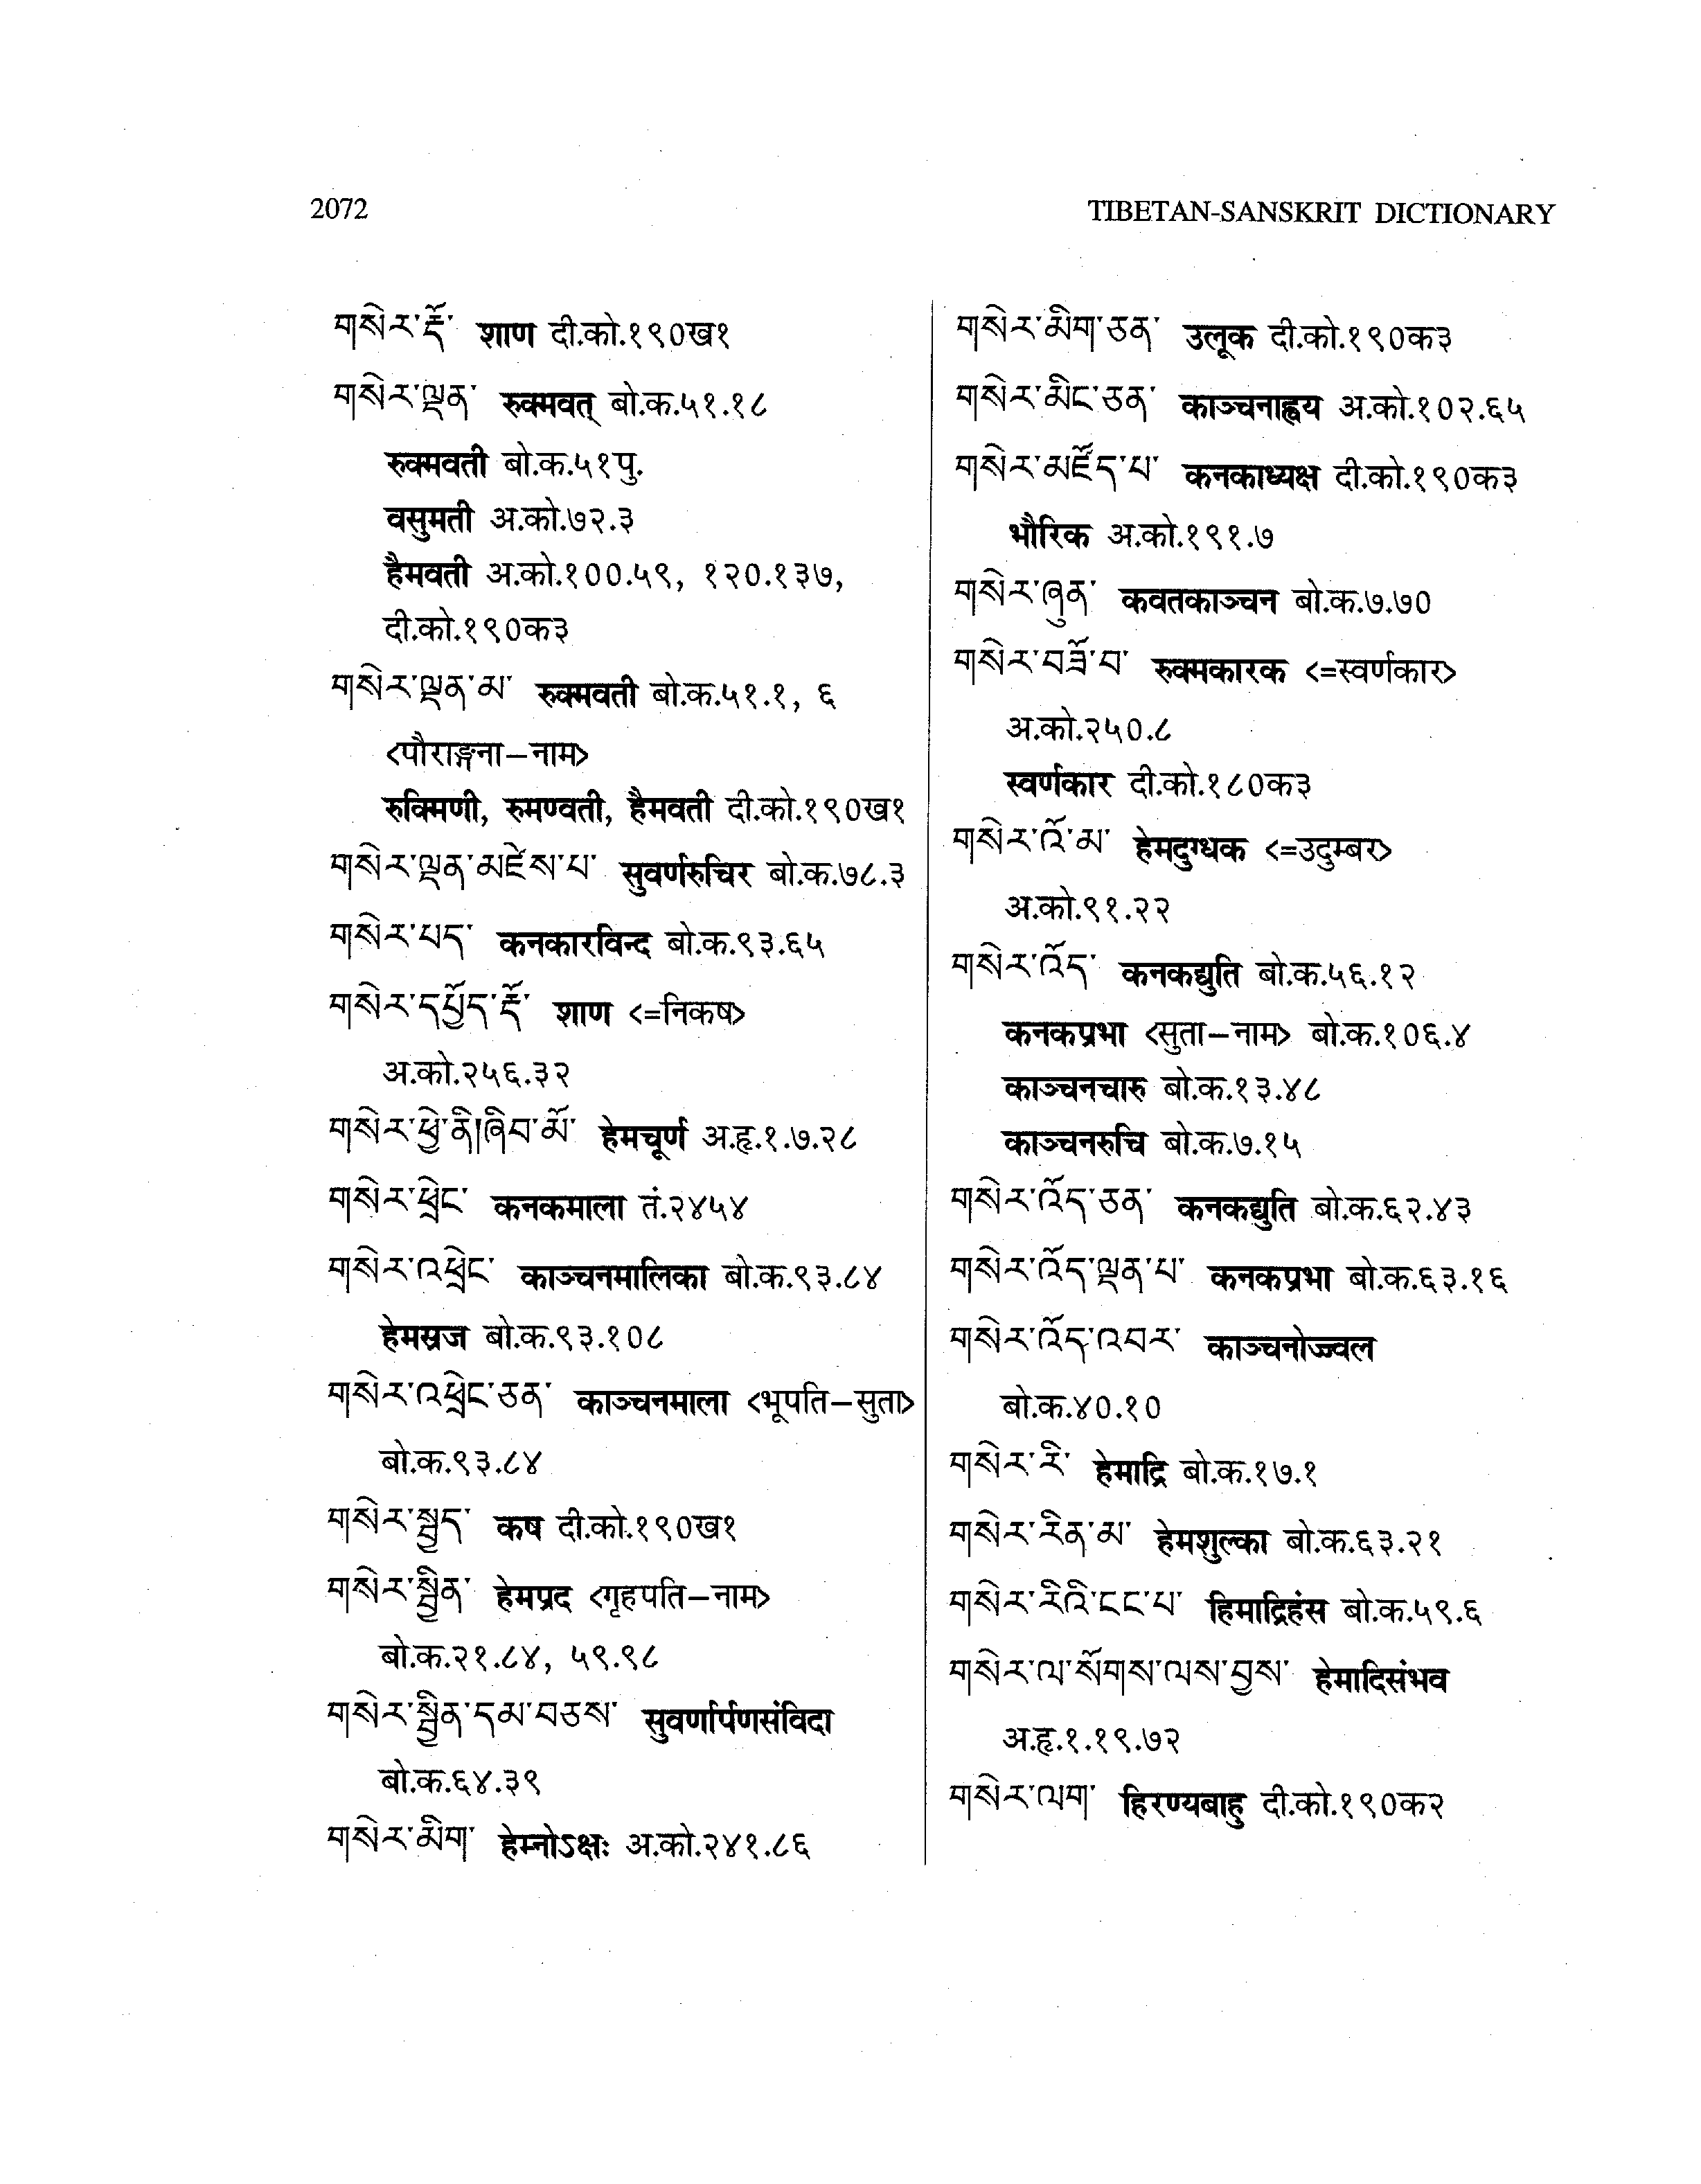 2072
TIBETAN-SANSKRIT DICTIONARY
གསེར་རྡོ་ शाण दी.को.१९०ख१
གསེར་ལྡན་ रुक्मवत् बो.क.५१.१८
रुक्मवती बो.क.५१पु.
वसुमती अ.को.७२.३
हैमवती अ.को.१००.५९, १२०.१३७,
दी.को.१९०क३
གསེར་ལྡན་མ་ रुक्मवती बो.क.५१.१, ६
<पौराङ्गना–नाम>
रुक्मिणी, रुमण्वती, हैमवती दी.को.१९०ख१
གསེར་ལྡན་མཛེས་པ་ सुवर्णरुचिर बो.क.७८.३
གསེར་པད་ कनकारविन्द बो.क.९३.६५
གསེར་དཔྱོད་རྡོ་ शाण <=निकष>
अ.को.२५६.३२
གསེར་ཕྱེ་ནི།ཞིབ་མོ་ हेमचूर्ण अ.हृ.१.७.२८
གསེར་ཕྲེང་ कनकमाला तं.२४५४
གསེར་འཕྲེང་ काञ्चनमालिका बो.क.९३.८४
हेमस्रज बो.क.९३.१०८
གསེར་འཕྲེང་ཅན་ काञ्चनमाला <भूपति–सुता>
बो.क.९३.८४
གསེར་སྦྱད་ कष दी.को.१९०ख१
གསེར་སྦྱིན་ हेमप्रद <गृहपति–नाम>
बो.क.२१.८४, ५९.९८
གསེར་སྦྱིན་དམ་བཅས་ सुवर्णार्पणसंविदा
बो.क.६४.३९
གསེར་མིག་ हेम्नोऽक्षः अ.को.२४१.८६
གསེར་མིག་ཅན་ उलूक दी.को.१९०क३
གསེར་མིང་ཅན་ काञ्चनाह्वय अ.को.१०२.६५
གསེར་མཛོད་པ་ कनकाध्यक्ष दी.को.१९०क३
भौरिक अ.को.१९१.७
གསེར་ཞུན་ कवतकाञ्चन बो.क.७.७०
གསེར་བཟོ་བ་ रुक्मकारक <=स्वर्णकार>
अ.को.२५०.८
स्वर्णकार दी.को.१८०क३
གསེར་འོ་མ་ हेमदुग्धक <=उदुम्बर>
अ.को.९१.२२
གསེར་འོད་ कनकद्युति बो.क.५६.१२
कनकप्रभा <सुता–नाम> बो.क.१०६.४
काञ्चनचारु बो.क.१३.४८
काञ्चनरुचि बो.क.७.१५
གསེར་འོད་ཅན་ कनकद्युति बो.क.६२.४३
གསེར་འོད་ལྡན་པ་ कनकप्रभा बो.क.६३.१६
གསེར་འོད་འབར་ काञ्चनोज्ज्वल
बो.क.४०.१०
གསེར་རི་ हेमाद्रि बो.क.१७.१
གསེར་རིན་མ་ हेमशुल्का बो.क.६३.२१
གསེར་རིའི་ངང་པ་ हिमाद्रिहंस बो.क.५९.६
གསེར་ལ་སོགས་ལས་བྱས་ हेमादिसंभव
अ.हृ.१.१९.७२
གསེར་ལག་ हिरण्यबाहु दी.को.१९०क२